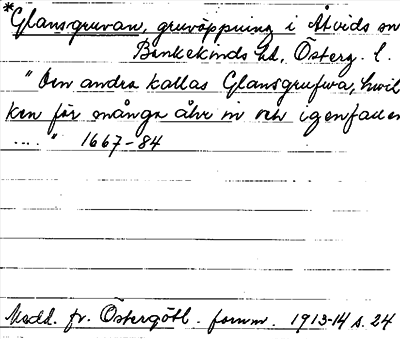 *Glansgruvan, gruvöppning i Åtvids sn
Bankekinds hd, Österg. l.
"Den andra kallas Glansgrufwa, hwil
ken för många åhr in och igenfallen
...." 1667-84
Medd. fr. Östergötl. fornm. 1913-14 s. 24